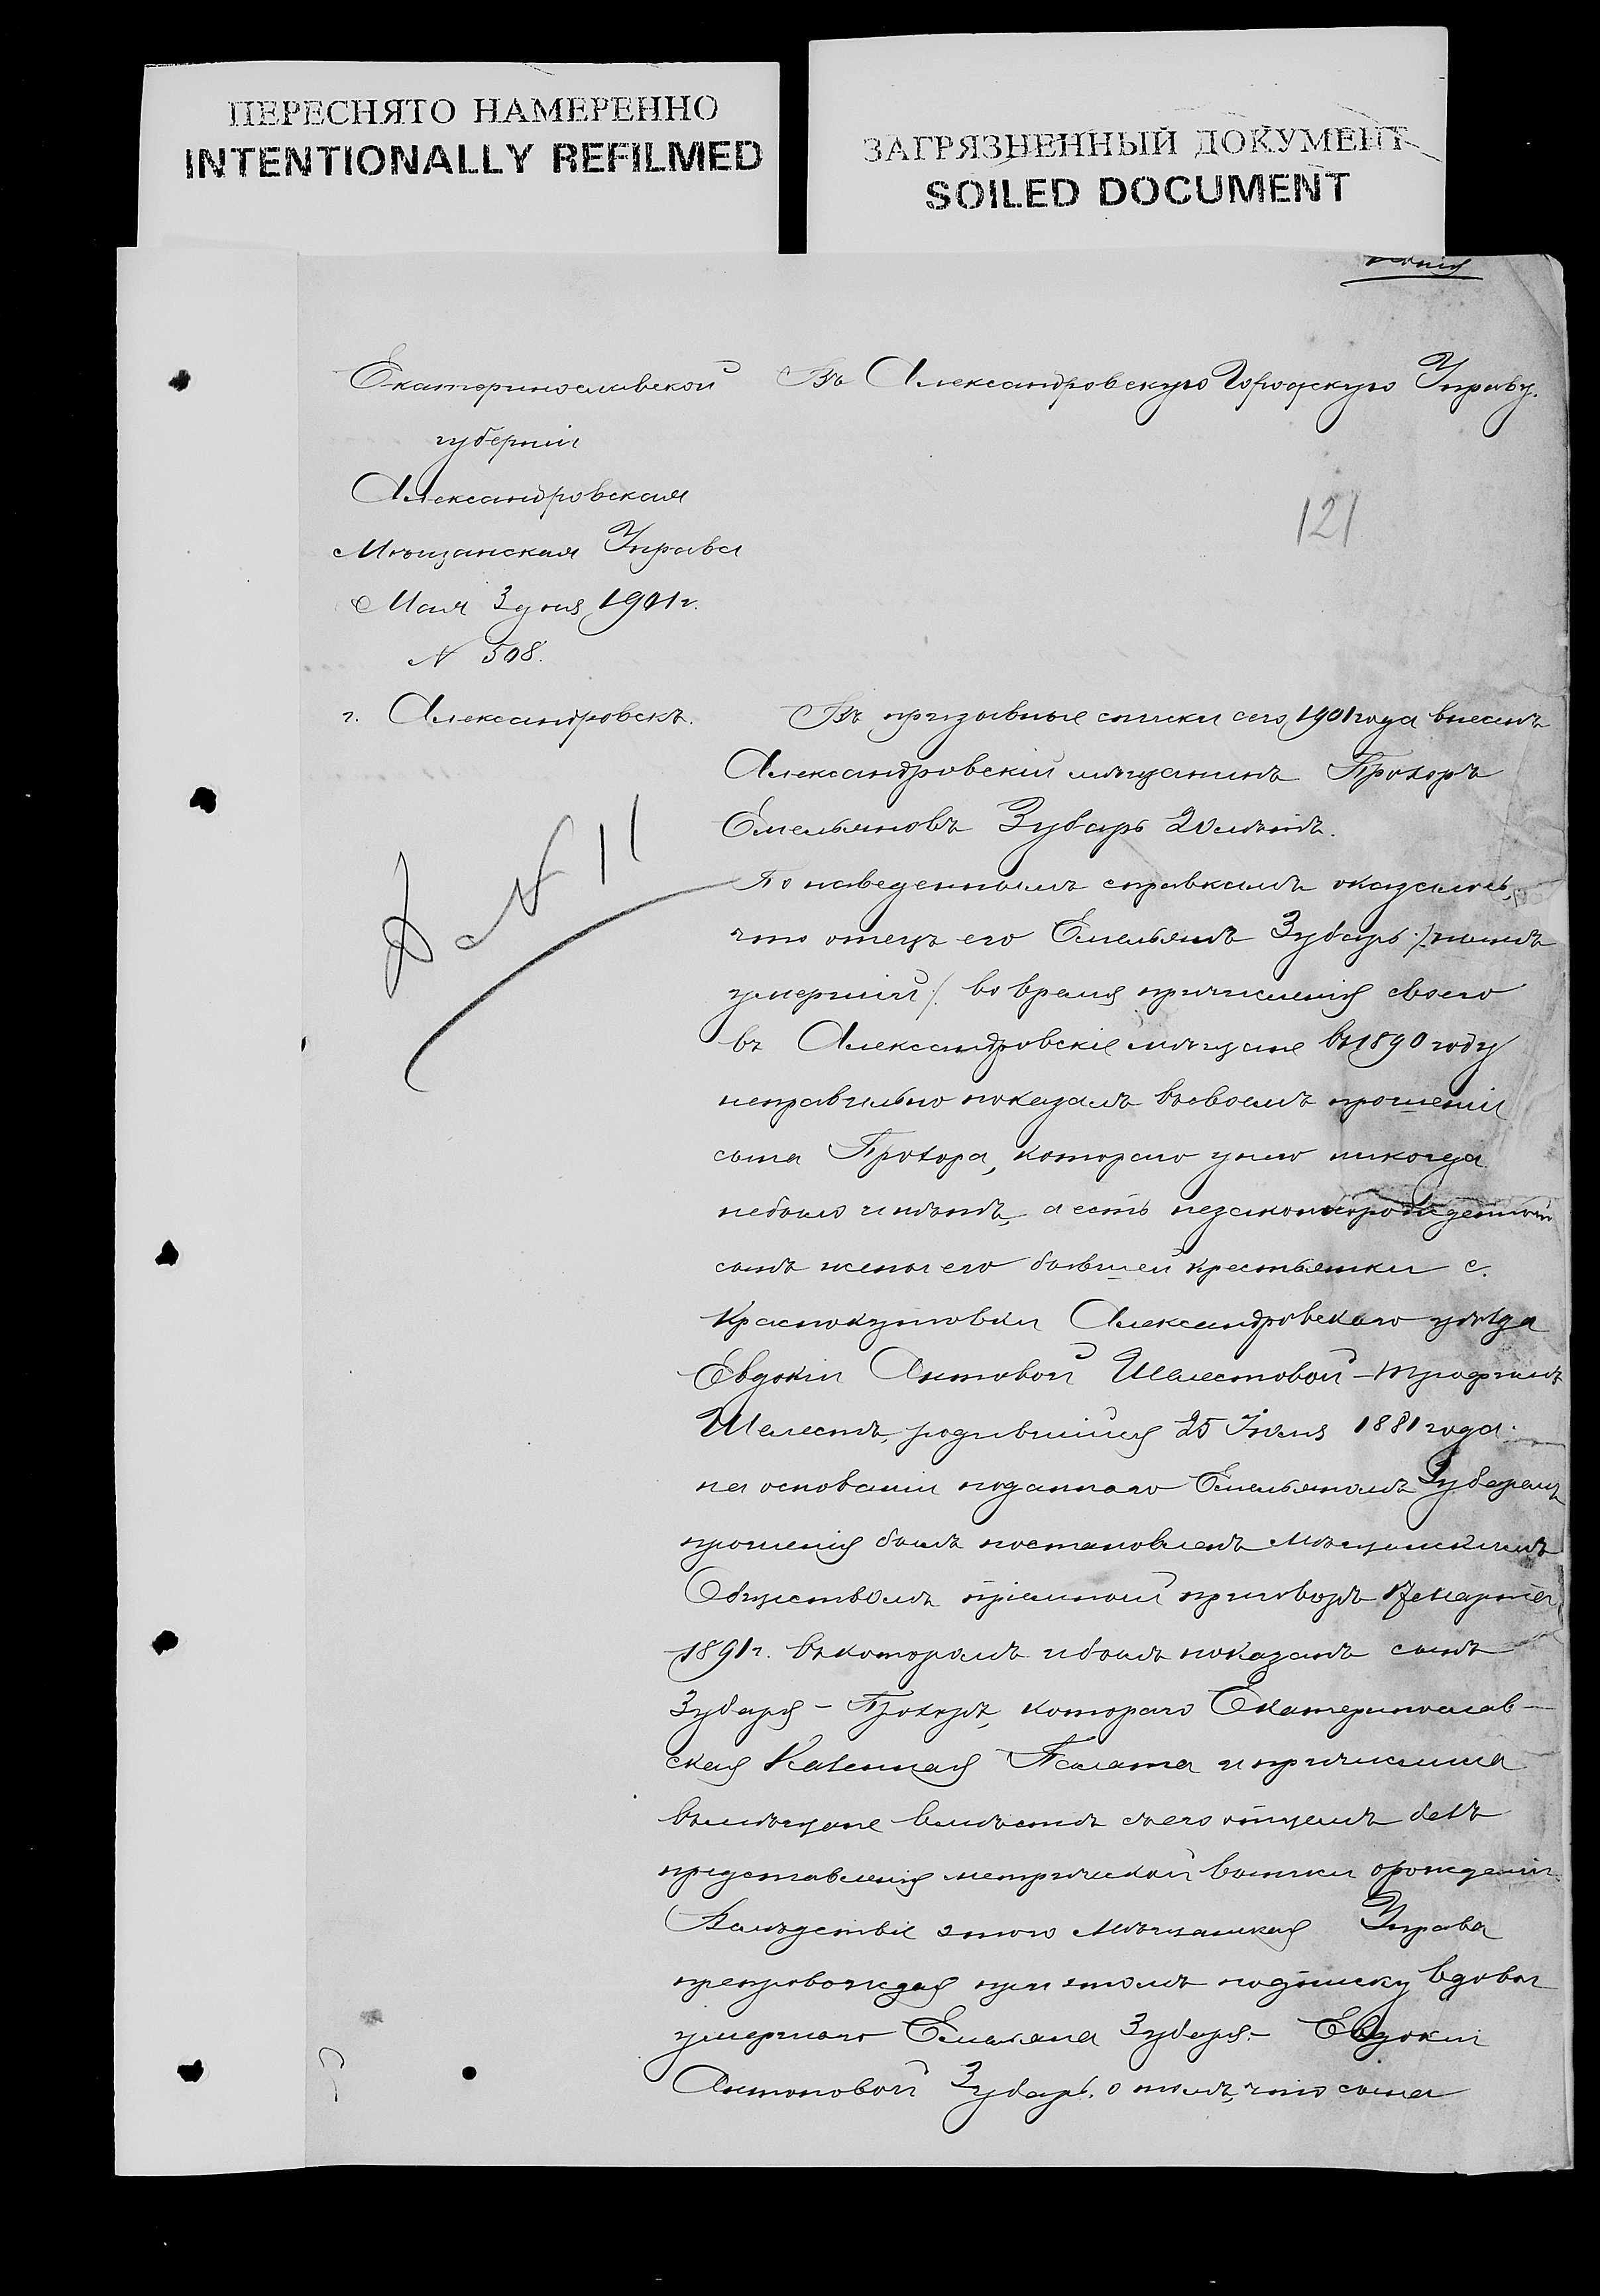 ПЕРЕСНЯТО НАМЕРЕННО
INTENTIONALLY REFILMED
ЗАГРЯЗНЕННЫЙ ДОКУМЕНТ
SOILED DOCUMENT
Копія
Екатеринославской
губерніи
Александровская
Мѣщанская Управа
Мая 3 дня 1901 г.
№ 508.
г. Александровскъ.
Въ Александровскую Городскую Управу.
121
Д № 11
Въ призывные списки сего 1901 года внесенъ
Александровскій мѣщанинъ Прохоръ
Емельяновъ Зубарь 20 лѣтъ.
По наведеннымъ справкамъ оказалось,
что отецъ его Емельянъ Зубарь /нынѣ
умершій/ во время причисленія своего
въ Александровскіе мѣщане въ 1890 году
неправильно показалъ въ своемъ прошеніи
сына Прохора, котораго у него никогда
не было и нѣтъ, а есть незаконнорожденный
сынъ жены его бывшей крестьянки с.
Краснокутовки Александровскаго уѣзда
Евдокіи Антовой Шелестовой – Трофимъ
Шелестъ, родившійся 25 Іюля 1881 года.
на основаніи поданнаго Емельяномъ Зубаремъ
прошенія былъ постановленъ Мѣщанскимъ
Обществомъ пріемный приговоръ 17 Марта
1891 г. въ которомъ и былъ показанъ сынъ
Зубаря – Прохоръ, котораго Екатеринослав-
ская Казенная Палата и причислила
въ мѣщане вмѣстѣ съ его отцемъ безъ
представленія метрической выписки о рожденіи.
Вслѣдствіе этого Мѣщанская Управа
препровождая при этомъ подписку вдовы
умершаго Емельяна Зубаря – Евдокіи
Антоновой Зубарь, о томъ, что сына